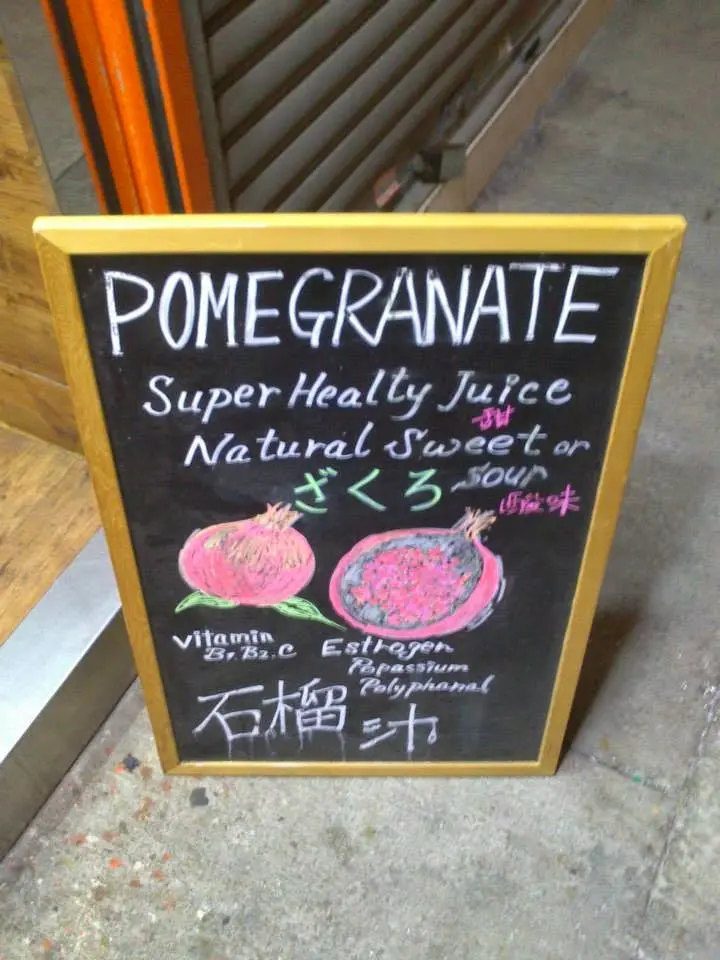 POMEGRANATE
Super Healty Juice
甜
Natural Sweet or
sour
ざくろ
酸味
Vitamin
B1, B2, C
Estrogen
Popassium
Polyphanal
石榴 汁